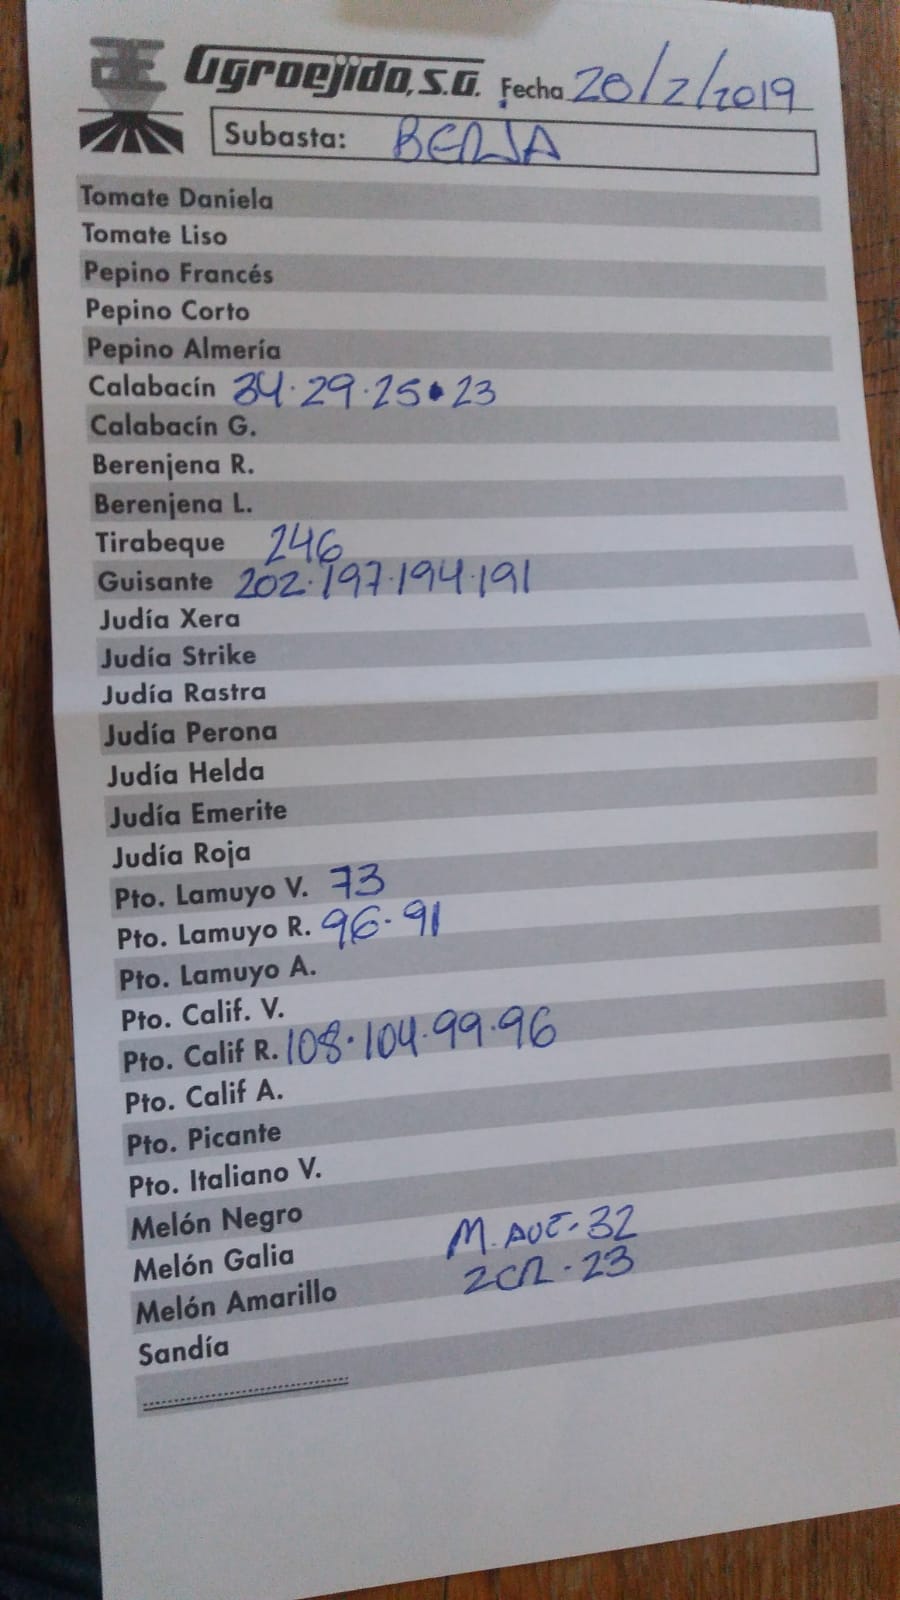 Agroejido, S.A. Fecha 20/2/2019
Subasta: BERJA
Tomate Daniela
Tomate Liso
Pepino Francés
Pepino Corto
Pepino Almería
Calabacín 34·29·25·23
Calabacín G.
Berenjena R.
Berenjena L.
Tirabeque 246
Guisante 202·197·194·191
Judía Xera
Judía Strike
Judía Rastra
Judía Perona
Judía Helda
Judía Emerite
Judía Roja
Pto. Lamuyo V. 73
Pto. Lamuyo R. 96·91
Pto. Lamuyo A.
Pto. Calif. V.
Pto. Calif R. 108·104·99·96
Pto. Calif A.
Pto. Picante
Pto. Italiano V.
Melón Negro
Melón Galia M. AUT·32
Melón Amarillo 2CR·23
Sandía